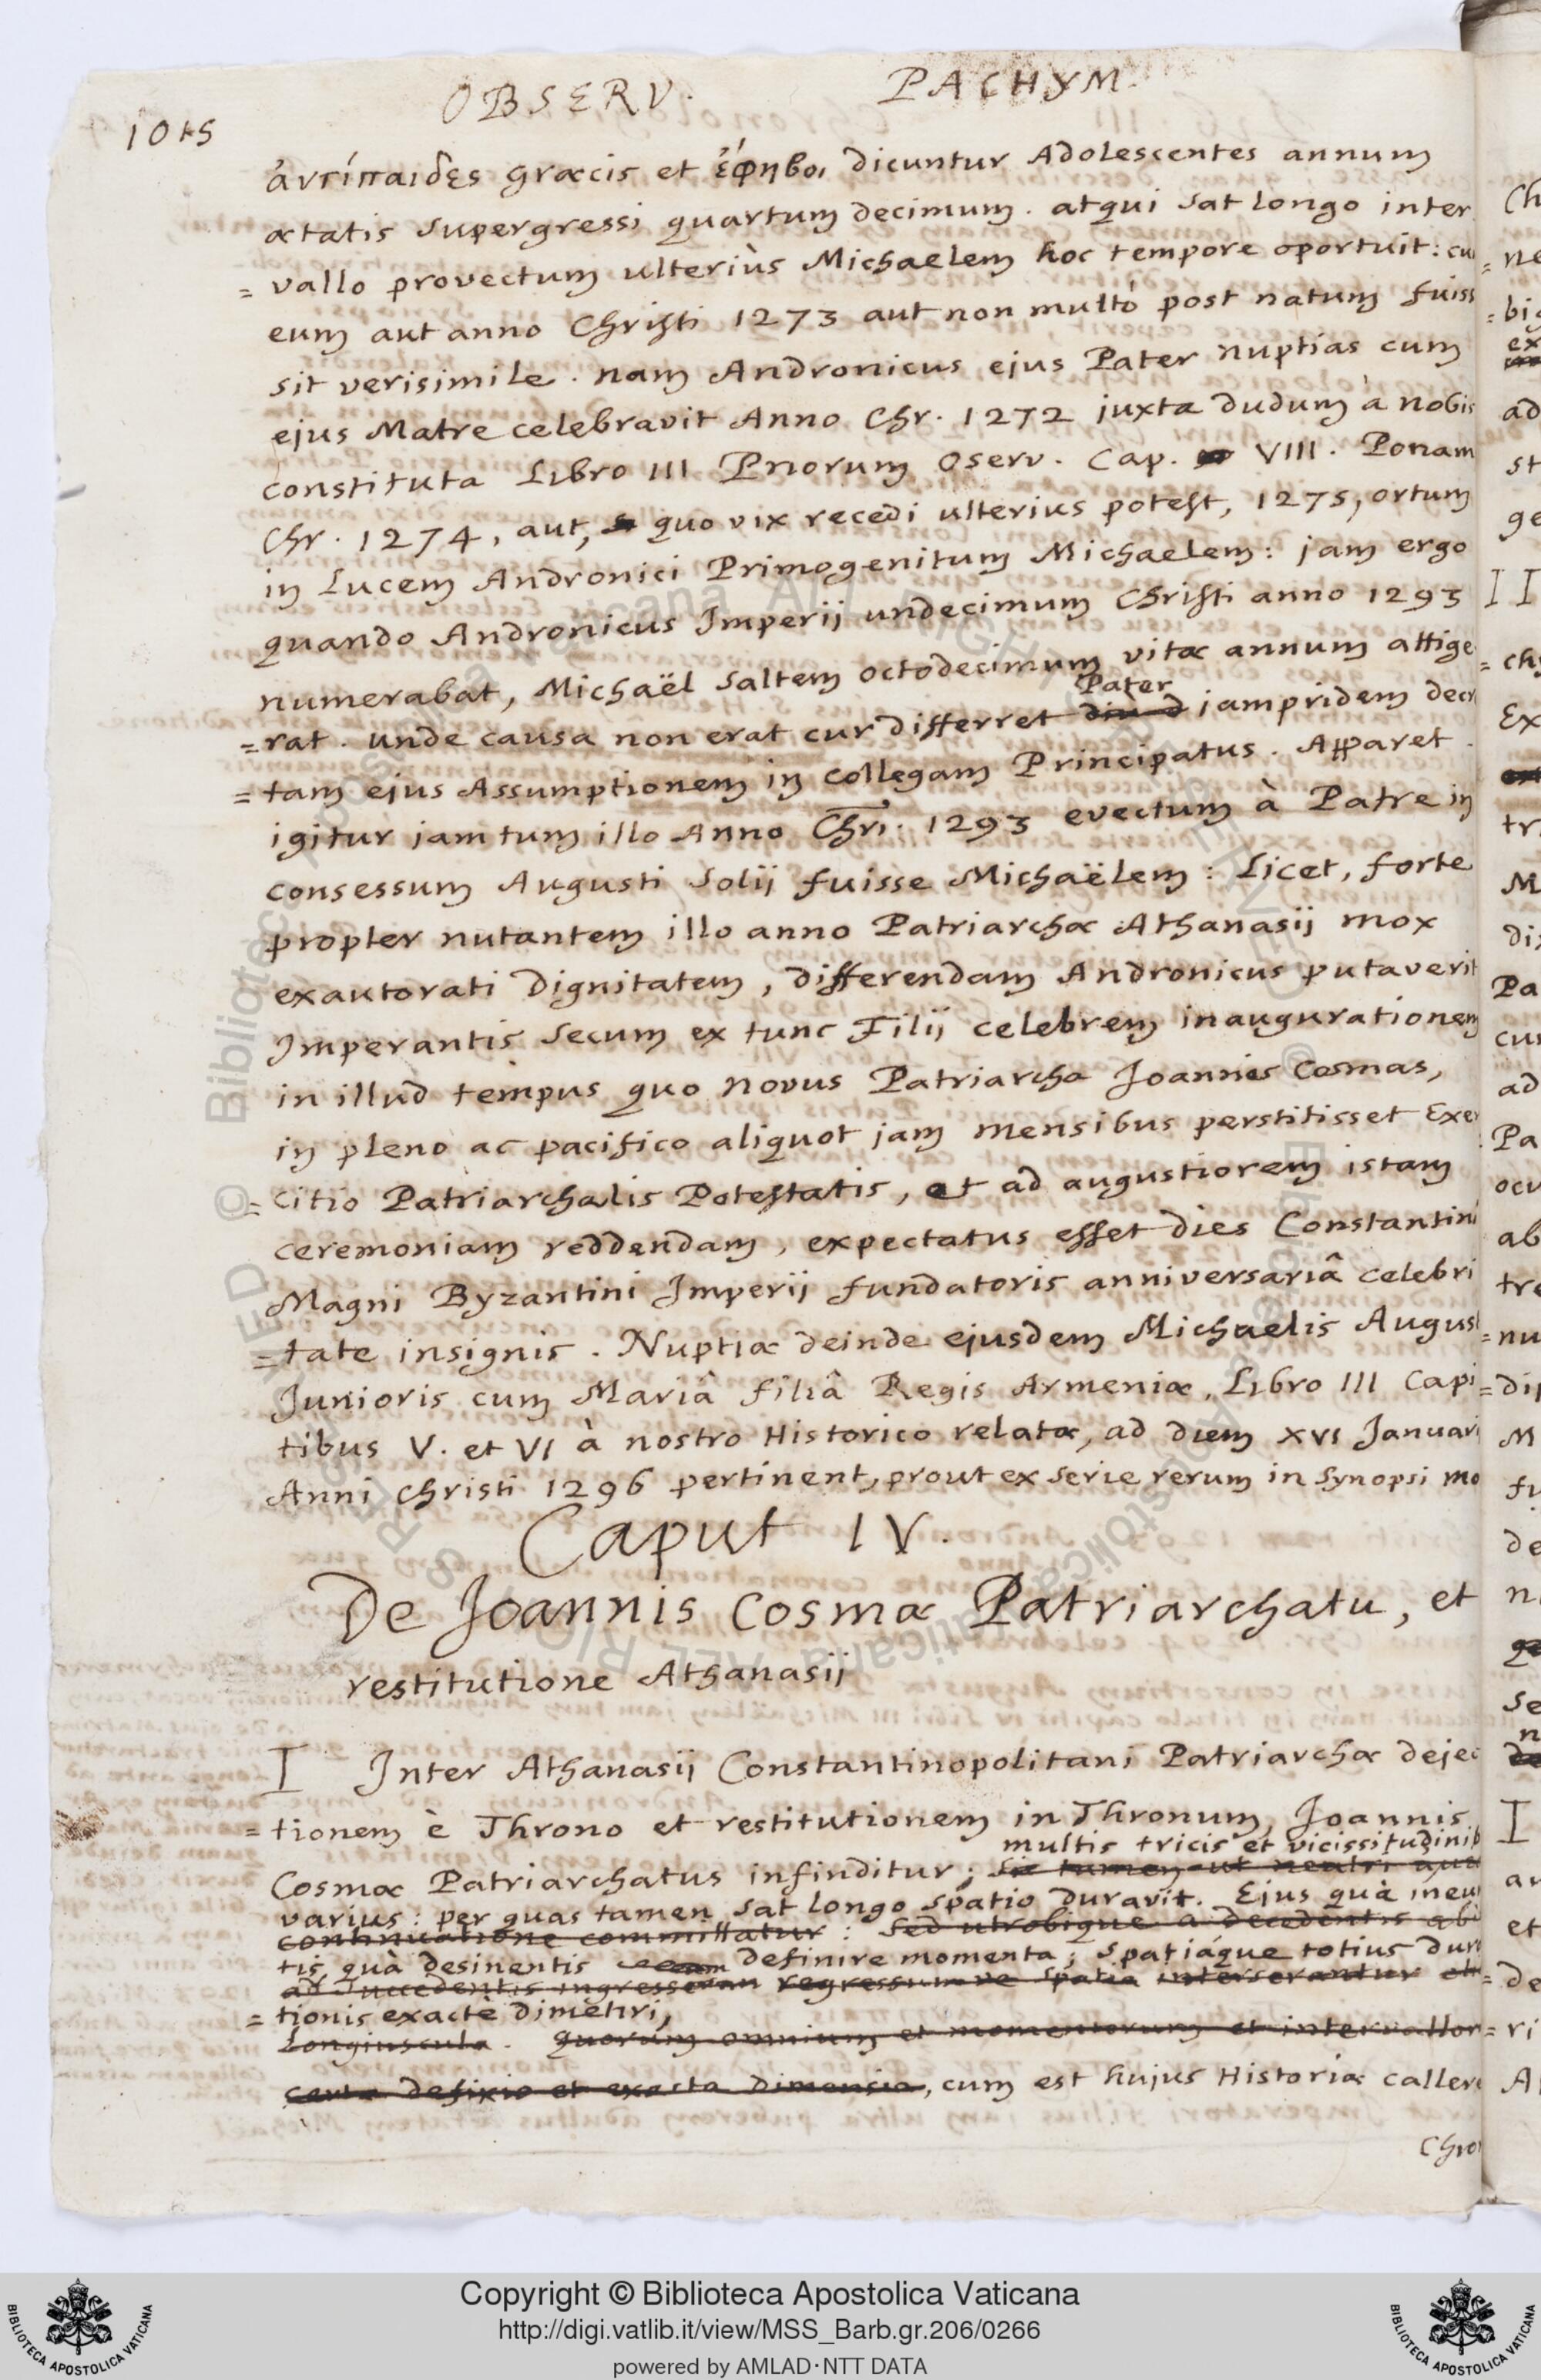 OBSERV. PACHYM.
1045
ἀντίπαιδες græcis et ἐφηβοι dicuntur Adolescentes annum
ætatis supergressi quartum decimum. atqui sat longo inter
= vallo provectum ulteriùs Michaelem hoc tempore oportuit: cu
eum aut anno Christi 1273 aut non multò post natum fuiss
sit verisimile. nam Andronicus ejus Pater nuptias cum
ejus Matre celebravit Anno Chr. 1272 juxta dudum à nobis
constituta Libro III Priorum Oserv. Cap. VIII. Ponam
Chr. 1274, aut, quo vix recedi ulterius potest, 1275, ortum
in Lucem Andronici Primogenitum Michaelem: jam ergo
quando Andronicus Imperij undecimum Christi anno 1293
numerabat, Michaël saltem octodecimum vitæ annum attige
Pater
= rat. unde causa non erat cur differret diu d jampridem decr
= tam ejus Assumptionem in collegam Principatus. Apparet
igitur jam tum illo Anno Chri. 1293 evectum à Patre in
consessum Augusti Solij fuisse Michaëlem: Licet, forte
propter nutantem illo anno Patriarchæ Athanasij mox
exautorati Dignitatem, differendam Andronicus putaverit
Imperantis secum ex tunc Filij celebrem inaugurationem
in illud tempus quo novus Patriarcha Joannes Cosmas,
in pleno ac pacifico aliquot jam mensibus perstitisset Exer
= citio Patriarchalis Potestatis, et ad augustiorem istam
ceremoniam reddendam, expectatus esset dies Constantini
Magni Byzantini Imperij fundatoris anniversariâ celebri
= tate insignis. Nuptiæ deinde ejusdem Michaelis August
Junioris cum Mariâ filiâ Regis Armeniæ, Libro III Capi
tibus V. et VI à nostro Historico relatæ, ad diem XVI Januari
Anni Christi 1296 pertinent, prout ex serie rerum in Synopsi mo
Caput IV.
De Joannis Cosmæ Patriarchatu, et
restitutione Athanasij
I Inter Athanasij Constantinopolitani Patriarchæ dejec
= tionem è Throno et restitutionem in Thronum, Joannis
multis tricis et vicissitudinib
Cosmæ Patriarchatus infinditur; sic tamen ut neutri
varius: per quas tamen sat longo spatio duravit. Ejus quà ineu
continuatione committatur: sed utrobique a decedentis abi
tis quà desinentis definire momenta; spatiáque totius dur
ad succedentis ingressum regressumve spatia interserantur
= tionis exacte dimetiri,
longiuscula. Quorum omnium et momentorum et intervallor
certa defixio et exacta dimensio, cum est hujus Historiæ callere
Chro
Ch
= ne
= big
ex
ad
st
ge
II
= chy
Ex
tr
M
dis
Pa
cu
ad
Pa
ocu
ab
tre
= nu
= dip
M
fu
de
n
Se
n
I
an
et
= de
= ri
A
© Biblioteca Apostolica Vaticana ALL RIGHTS RESERVED
Copyright © Biblioteca Apostolica Vaticana
http://digi.vatlib.it/view/MSS_Barb.gr.206/0266
powered by AMLAD·NTT DATA
BIBLIOTECA APOSTOLICA VATICANA
BIBLIOTECA APOSTOLICA VATICANA